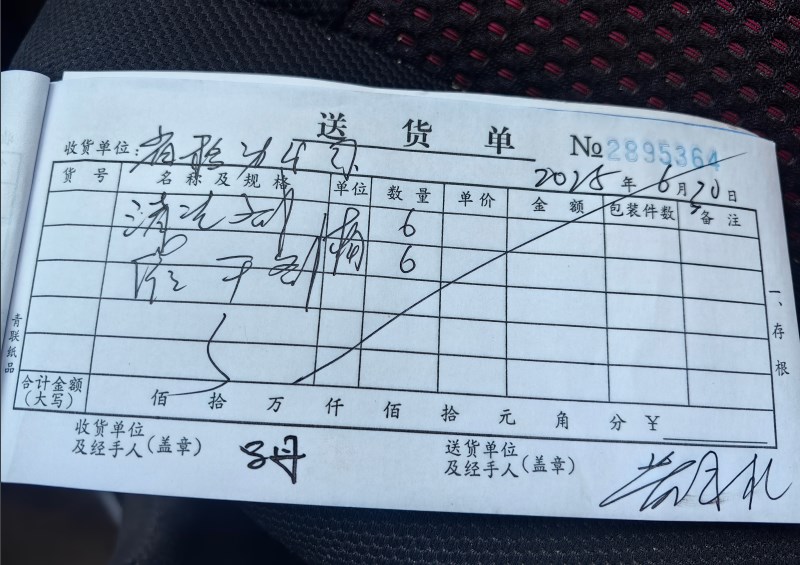 送货单
收货单位:
№2895364
2025年6月20日
货号 名称及规格 单位 数量 单价 金额 包装件数 备注
清洗剂 桶 6
干剂 6
合计金额(大写) 佰 拾 万 仟 佰 拾 元 角 分 ¥
收货单位及经手人(盖章)
送货单位及经手人(盖章)
一、存根
青联纸品